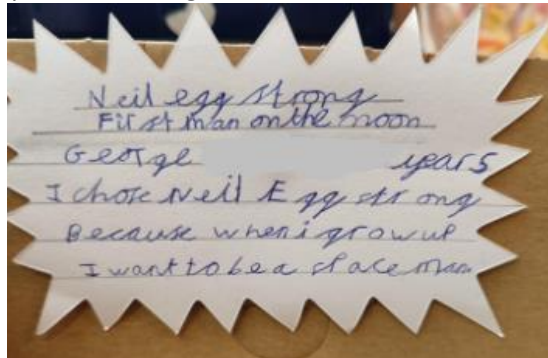 Neil egg strong
First man on the moon
George years
I chose Neil Egg strong
Because when i grow up
I want to be a space man